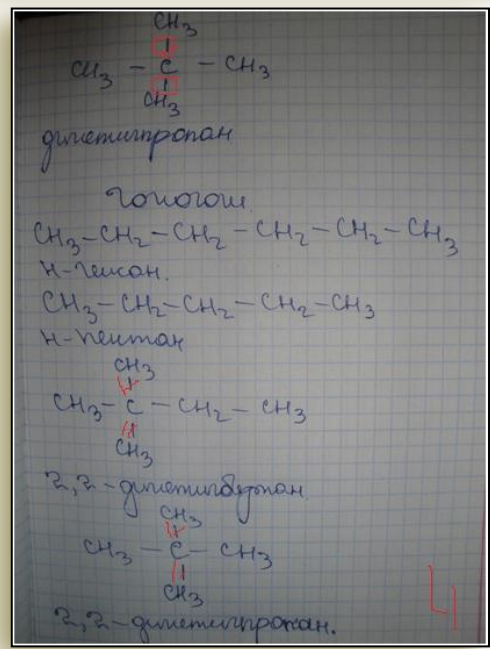 CH3
CH3 - C - CH3
CH3
диметилпропан
Гомологи.
CH3-CH2-CH2-CH2-CH2-CH3
н-гексан.
CH3-CH2-CH2-CH2-CH3
н-пентан
CH3
CH3-C-CH2-CH3
CH3
2,2-диметилбутан
CH3
CH3-C-CH3
CH3
2,2-диметилпропан.
4